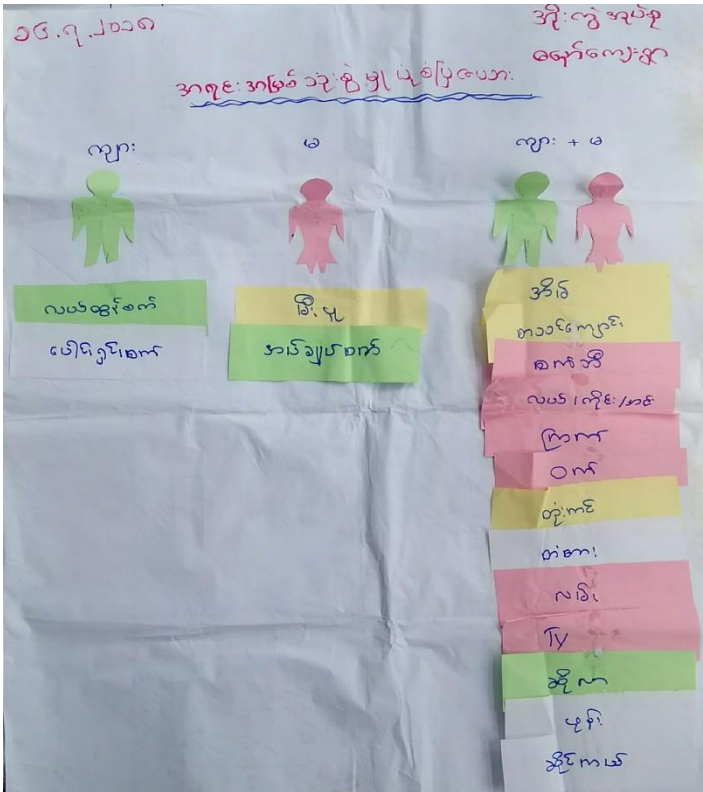 ၁၄.၇.၂၀၁၈
အိုးကွဲအုပ်စု
ကျေးရွာ
အရင်းအမြစ်သုံးစွဲမှုပုံစံပြဇယား
ကျား
မ
ကျား + မ
လယ်ထွန်စက်
ပေါင်းရှင်းစက်
မီးပူ
အပ်ချုပ်စက်
အိမ်
စာသင်ကျောင်း
စက်ဘီး
လယ်/ကိုင်း/
ကြက်
ဝက်
တံတား
TV
ဆိုလာ
ဖုန်း
ဆိုင်ကယ်